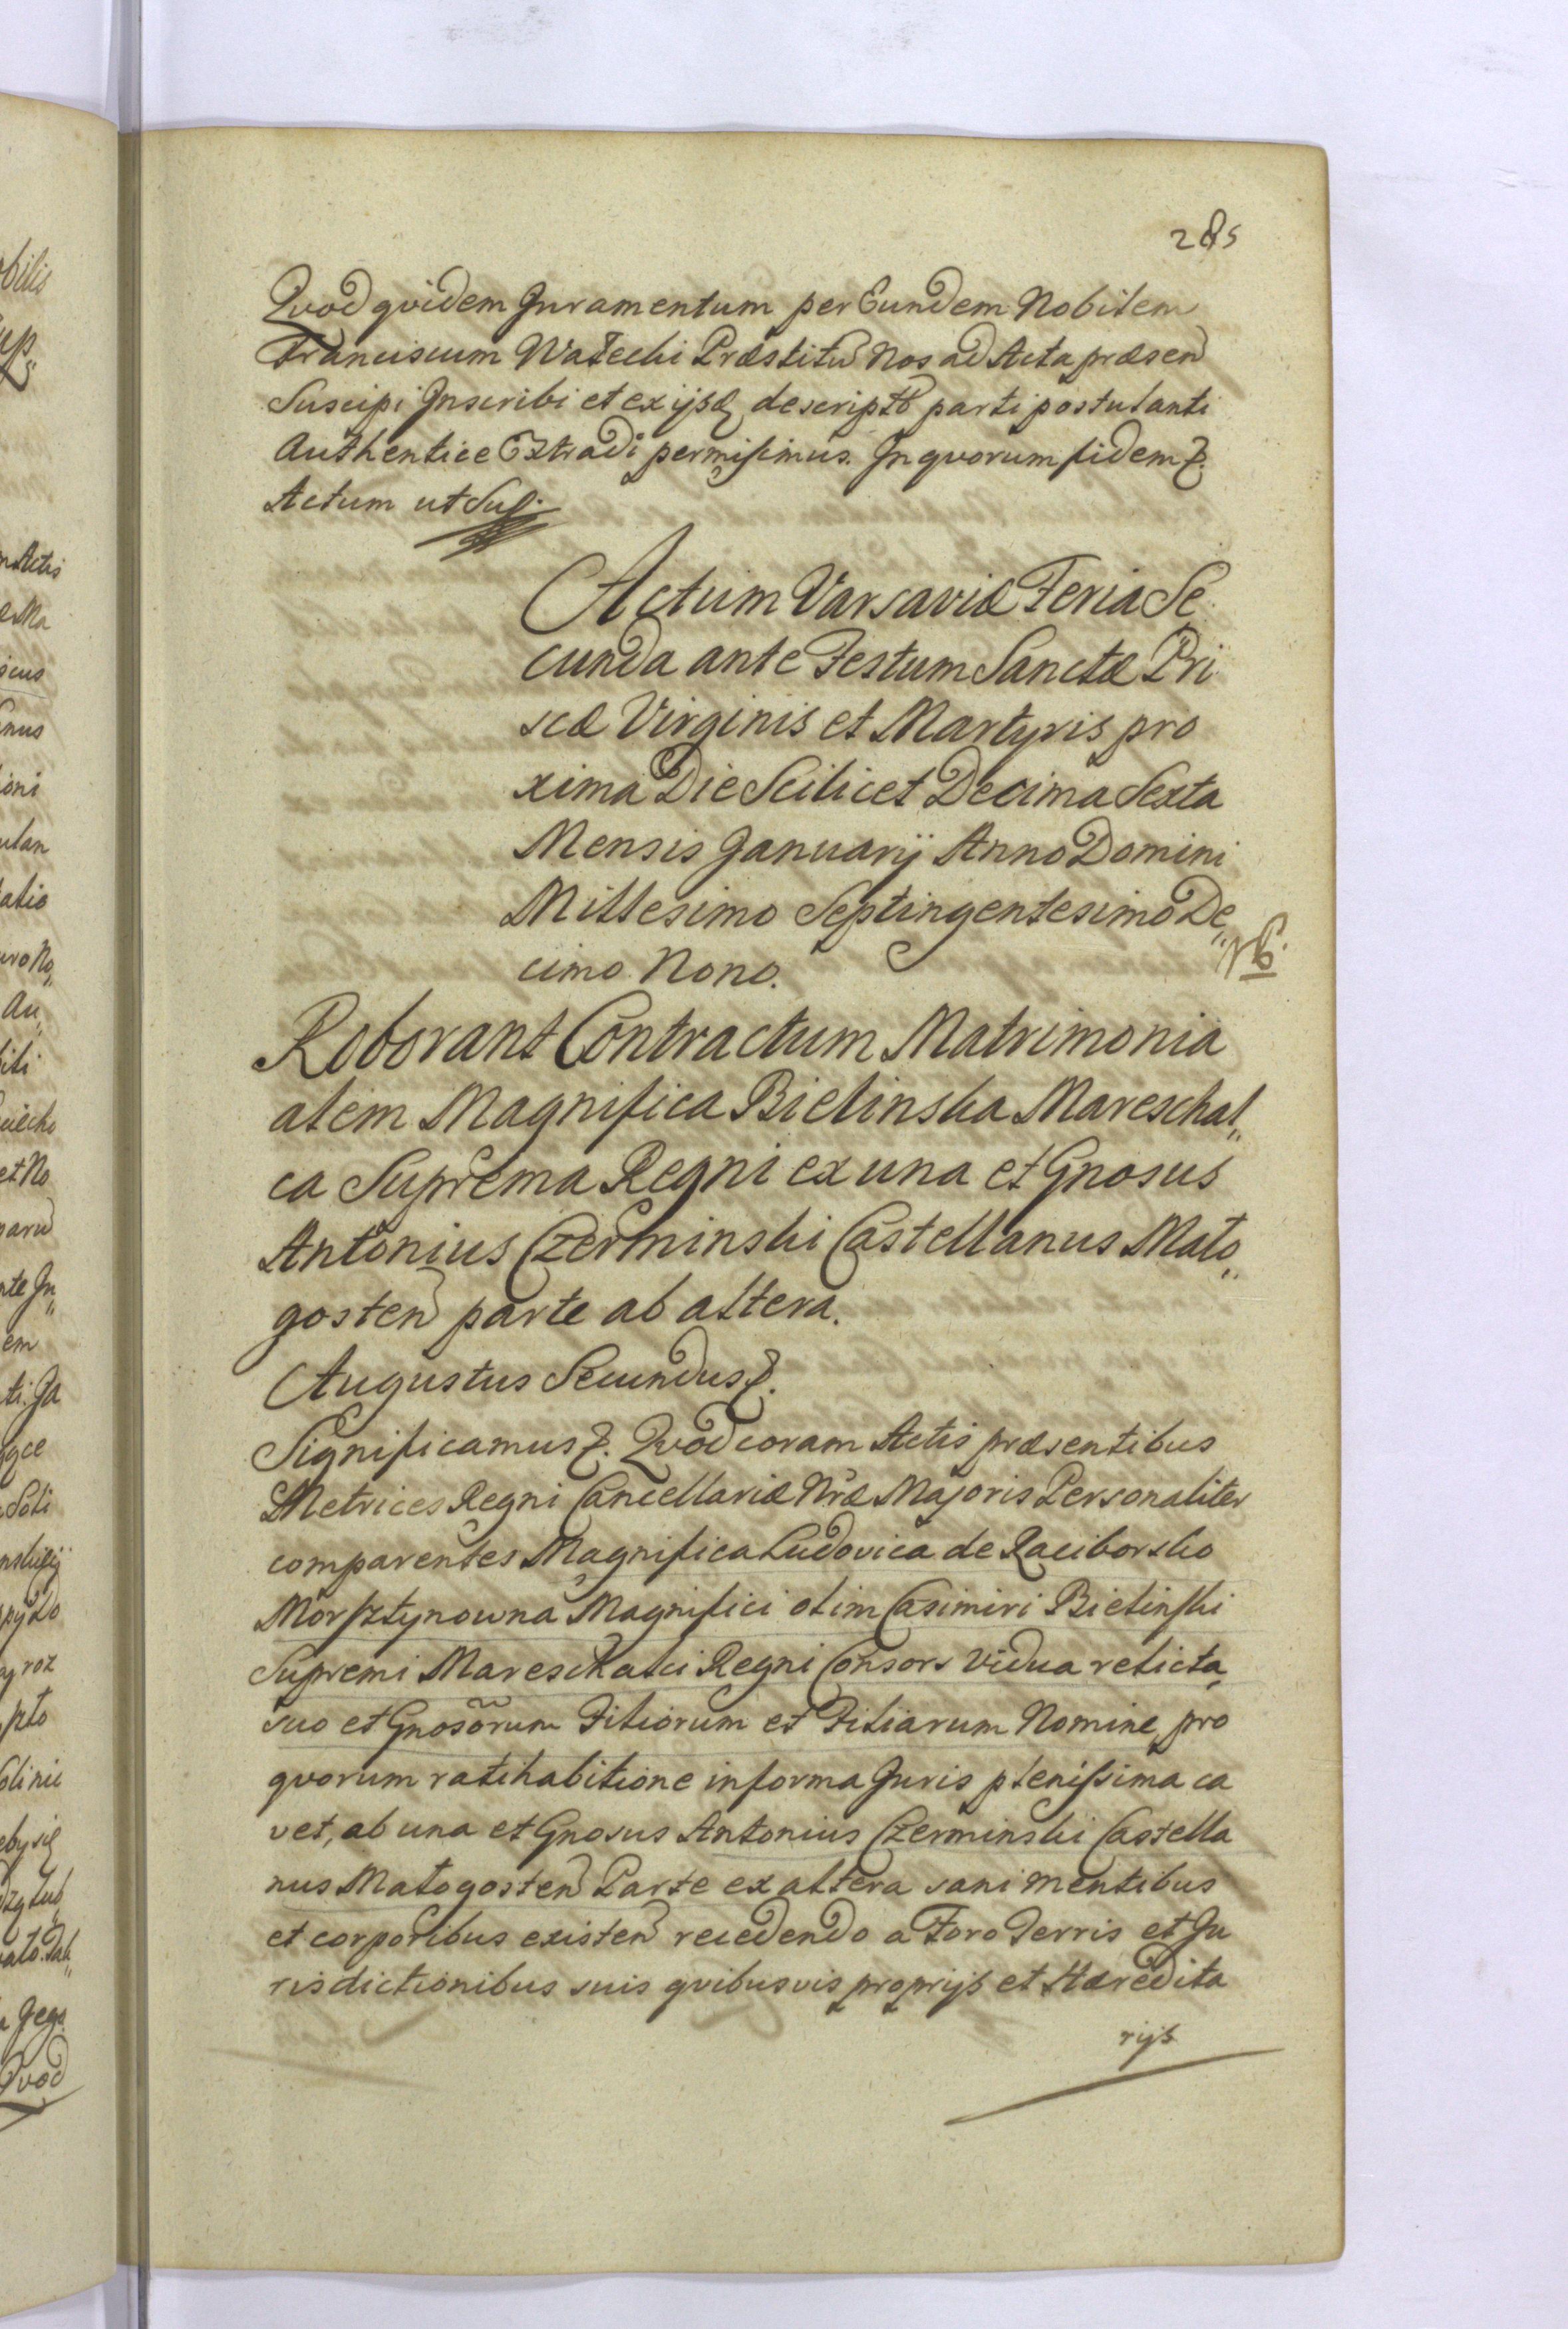 285
Quod quidem Juramentum per Eundem Nobilem
Franciscum Wałecki Præstitũ Nos ad Acta præsen
Suscipi Inscribi et ex ijsdē descriptũ parti postulanti
Authentice Extradi permisimus. In quorum fidem &.
Actum ut Sup.
Actum Varsaviæ Feria Se
cunda ante Festum Sanctæ Pri
scæ Virginis et Martyris pro
xima Die Scilicet Decima Sexta
Mensis Januarij Anno Domini
Millesimo Septingentesimo De„
cimo Nono.
NB.
Roborant Contractum Matrimonia
alem Magnifica Bielinska Mareschal„
ca Suprema Regni ex una et Gnosus
Antonius Czerminski Castellanus Mało„
gosten parte ab altera.
Augustus Secundus &.
Significamus &. Quod coram Actis præsentibus
Metrices Regni Cancellariæ Nræ Majoris Personaliter
comparentes Magnifica Ludovica de Raciborsko
Morsztynowna Magnifici olim Casimiri Bielinski
Supremi Mareschalci Regni Consors Vidua relicta,
suo et Gnosõrum Filiorum et Filiarum Nomine, pro
quorum ratihabitione in forma Juris plenissima ca
vet, ab una et Gnosus Antonius Czerminski Castella
nus Małogosten Parte ex altera sani mentibus
et corporibus existen recedendo a Foro Terris et Ju
risdictionibus suis quibusvis proprijs et Hæredita
rijs